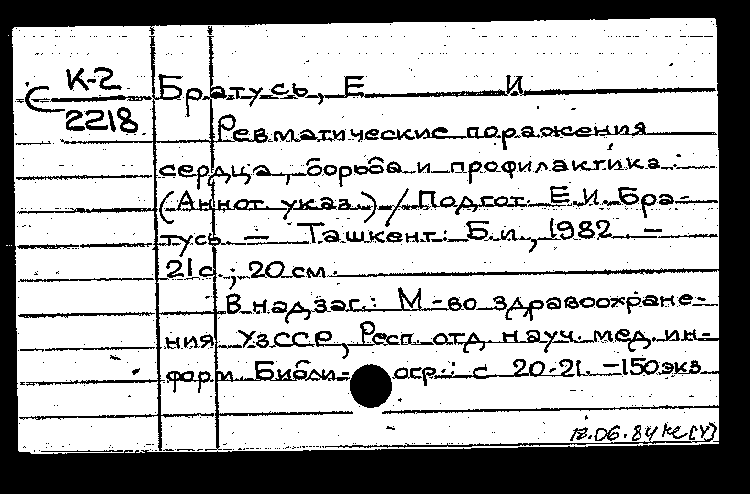 С К-2
2218
Братусь, Е И
Ревматические поражения
сердца, борьба и профилактика:
(Аннот. указ.) / Подгот. Е.И. Бра-
тусь. — Ташкент: Б.и., 1982. —
21 с.; 20 см.
В надзаг.: М-во здравоохране-
ния УзССР, Респ. отд. науч. мед. ин-
форм. Библи- огр.: с 20-21. — 150 экз
12.06.84